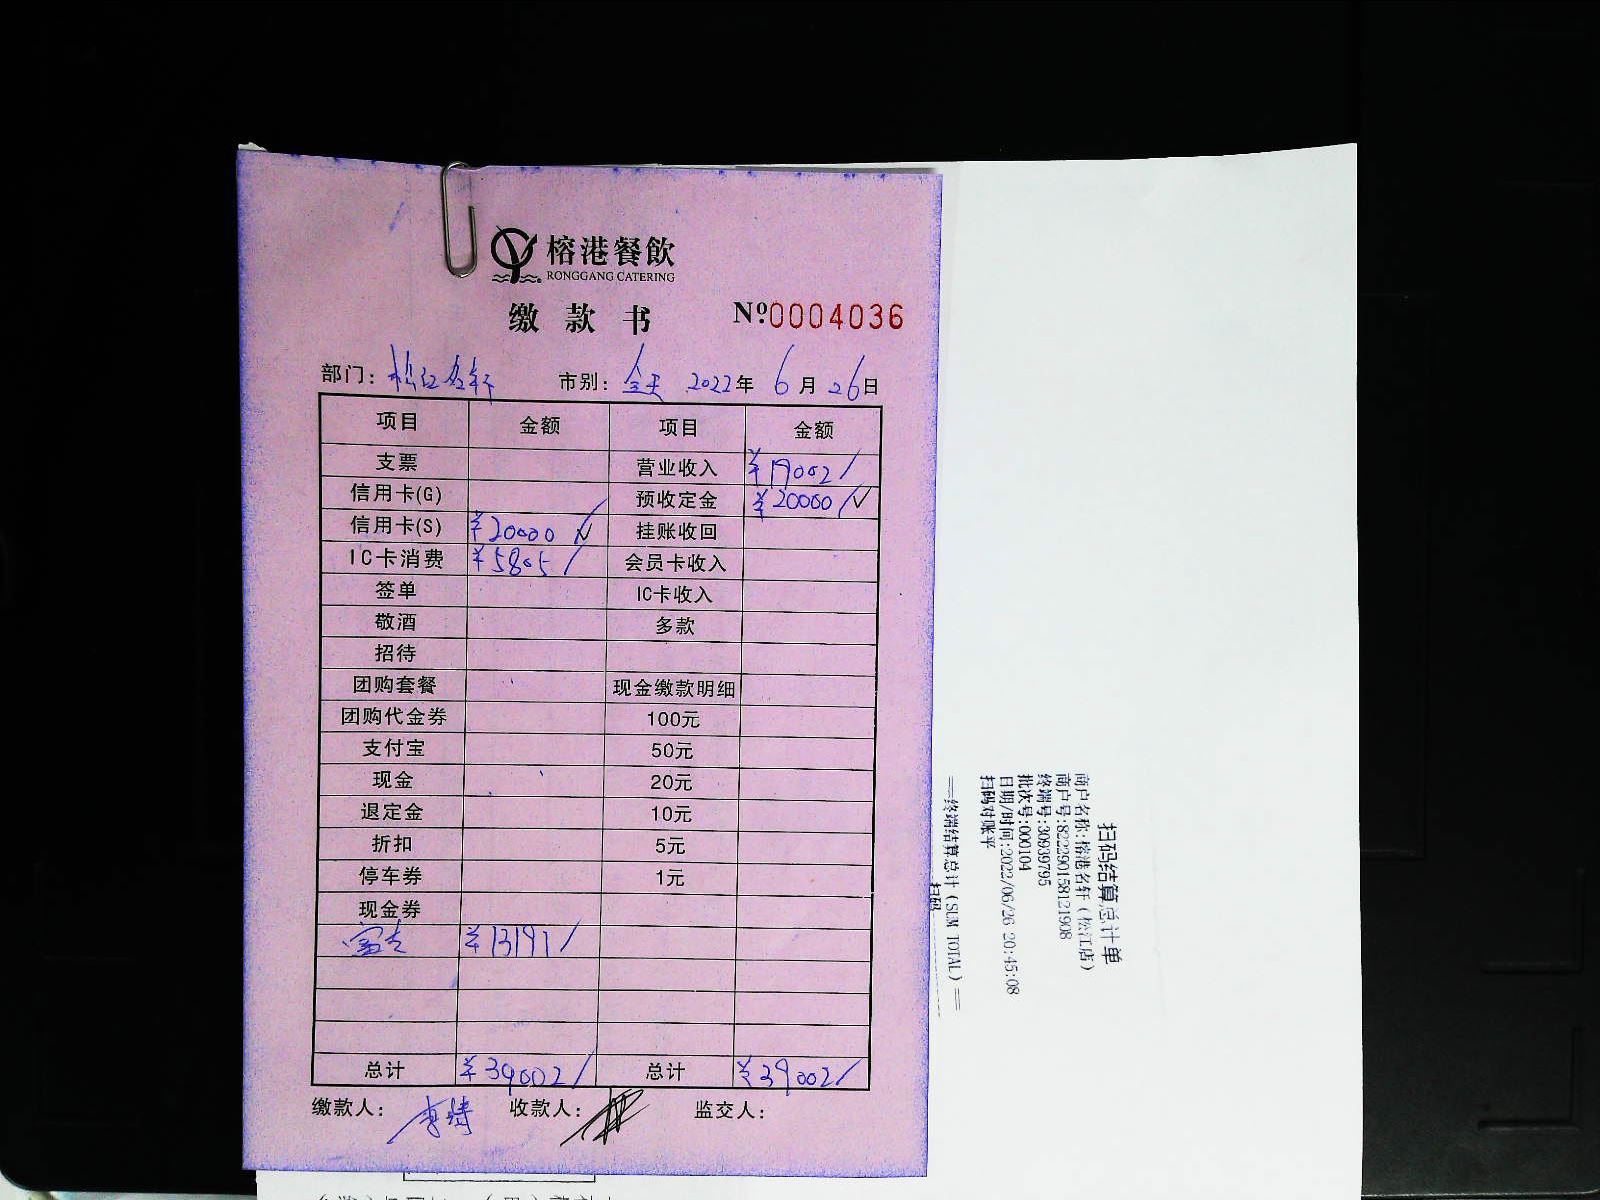 榕港餐飲
RONGGANG CATERING
缴款书 №0004036
部门: 松江名轩 市别: 全天 2022年 6月 26日
项目 金额 项目 金额
支票 营业收入 ¥19002/
信用卡(G) 预收定金 ¥20000/✓
信用卡(S) ¥20000 ✓ 挂账收回
IC卡消费 ¥5805/ 会员卡收入
签单 IC卡收入
敬酒 多款
招待
团购套餐 现金缴款明细
团购代金券 100元
支付宝 50元
现金 20元
退定金 10元
折扣 5元
停车券 1元
现金券
富友 ¥13197/
总计 ¥39002/ 总计 ¥39002/
缴款人: 收款人: 监交人:
扫码结算总计单
商户名称:榕港名轩(松江店)
商户号:822290158121908
终端号:30939795
批次号:000104
日期/时间:2022/06/26 20:45:08
扫码对账平
==终端结算总计(SUM TOTAL)==
扫码